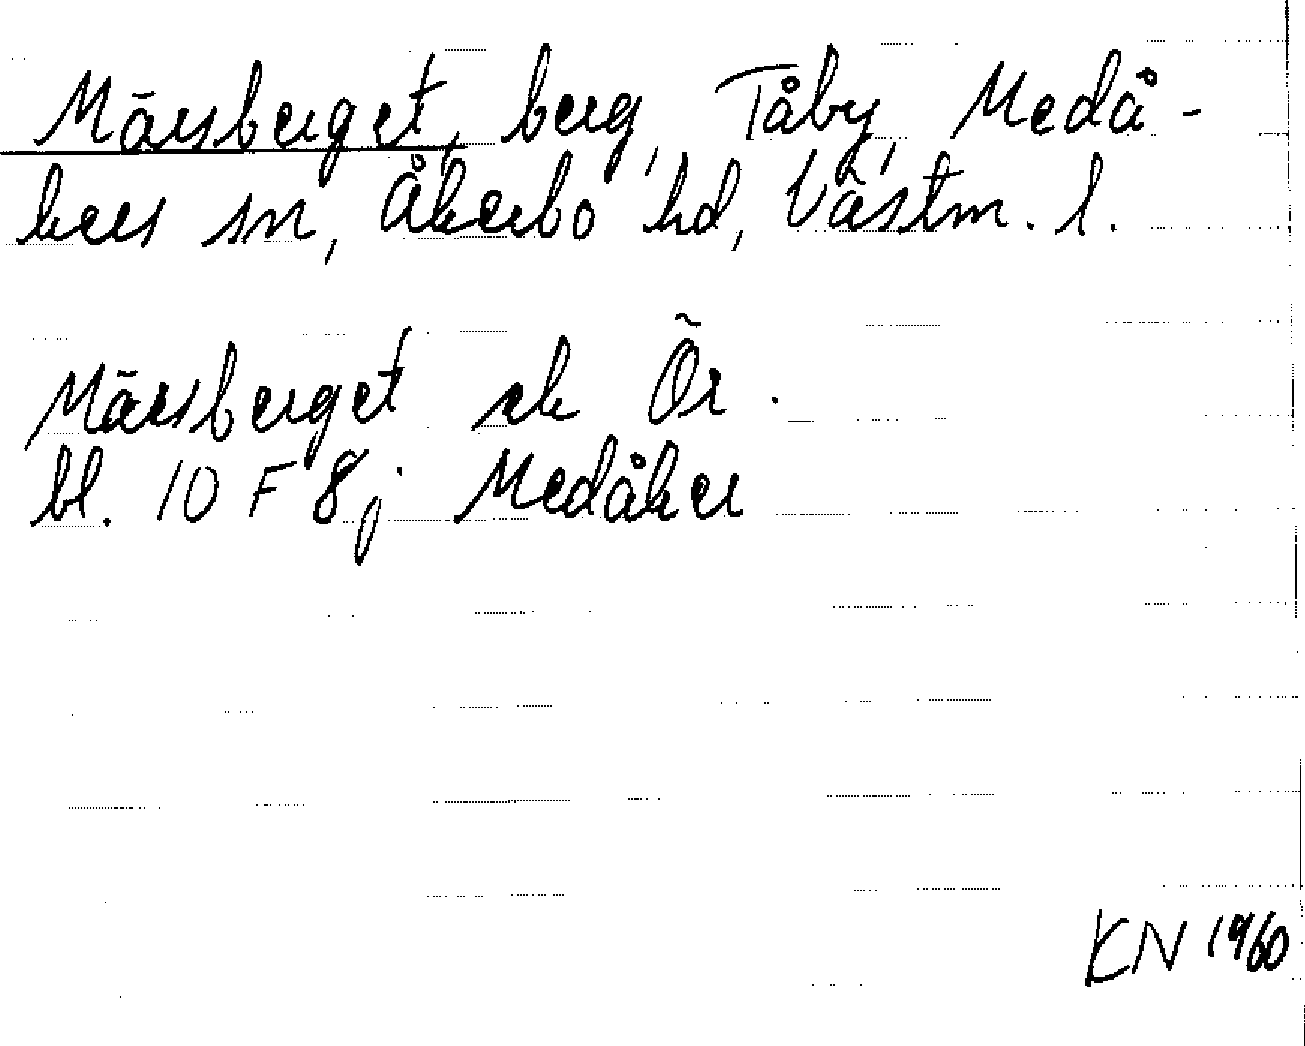 Märsberget, berg, Tåby, Medå-
kers sn, Åkerbo hd, Västm. l.
Märsberget ek Ör.
bl. 10 F 8j Medåker
KN 1960